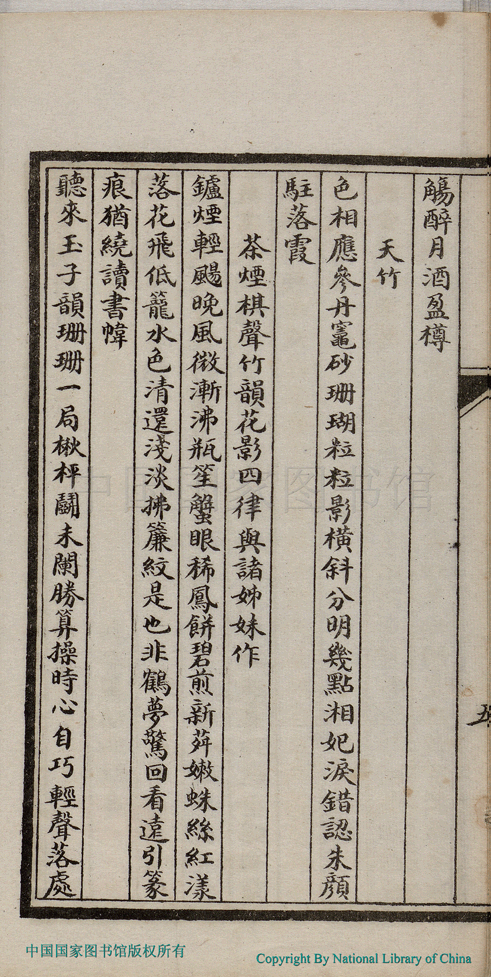 觴醉月酒盈樽
天竹
色相應參丹竈砂珊瑚粒粒影橫斜分明幾點湘妃淚錯認朱顏
駐落霞
茶煙棋聲竹韻花影四律與諸姊妹作
鑪煙輕颺晚風微漸沸瓶笙蟹眼稀鳳餅碧煎新荈嫩蛛絲紅漾
落花飛低籠水色清還淺淡拂簾紋是也非鶴夢驚回看遠引篆
痕猶繞讀書幃
聽來玉子韻珊珊一局楸枰鬭未闌勝算操時心自巧輕聲落處
中国国家图书馆
中国国家图书馆版权所有
Copyright By National Library of China